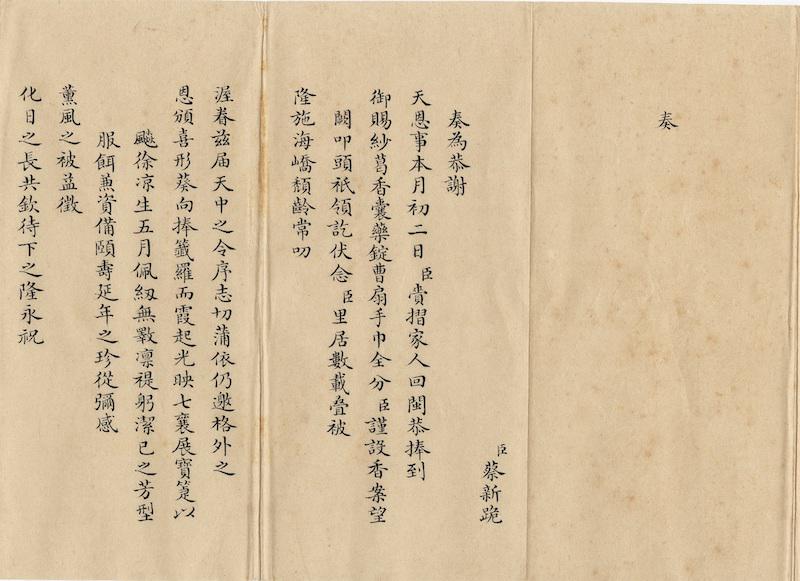 奏
臣蔡新跪
奏為恭謝
天恩事本月初二日臣賫摺家人回閩恭捧到
御賜紗葛香囊藥錠曹扇手巾全分臣謹設香案望
闕叩頭祇領訖伏念臣里居數載疊被
隆施海嶠頹齡常叨
渥眷茲届天中之令序志切蒲依仍邀格外之
恩頒喜形葵向捧籤羅而霞起光映七襄展寶箑以
颸徐凉生五月佩紉無斁凛禔躬潔已之芳型
服餌兼資備頤壽延年之珍從彌感
薰風之被益徵
化日之長共欽待下之隆永祝